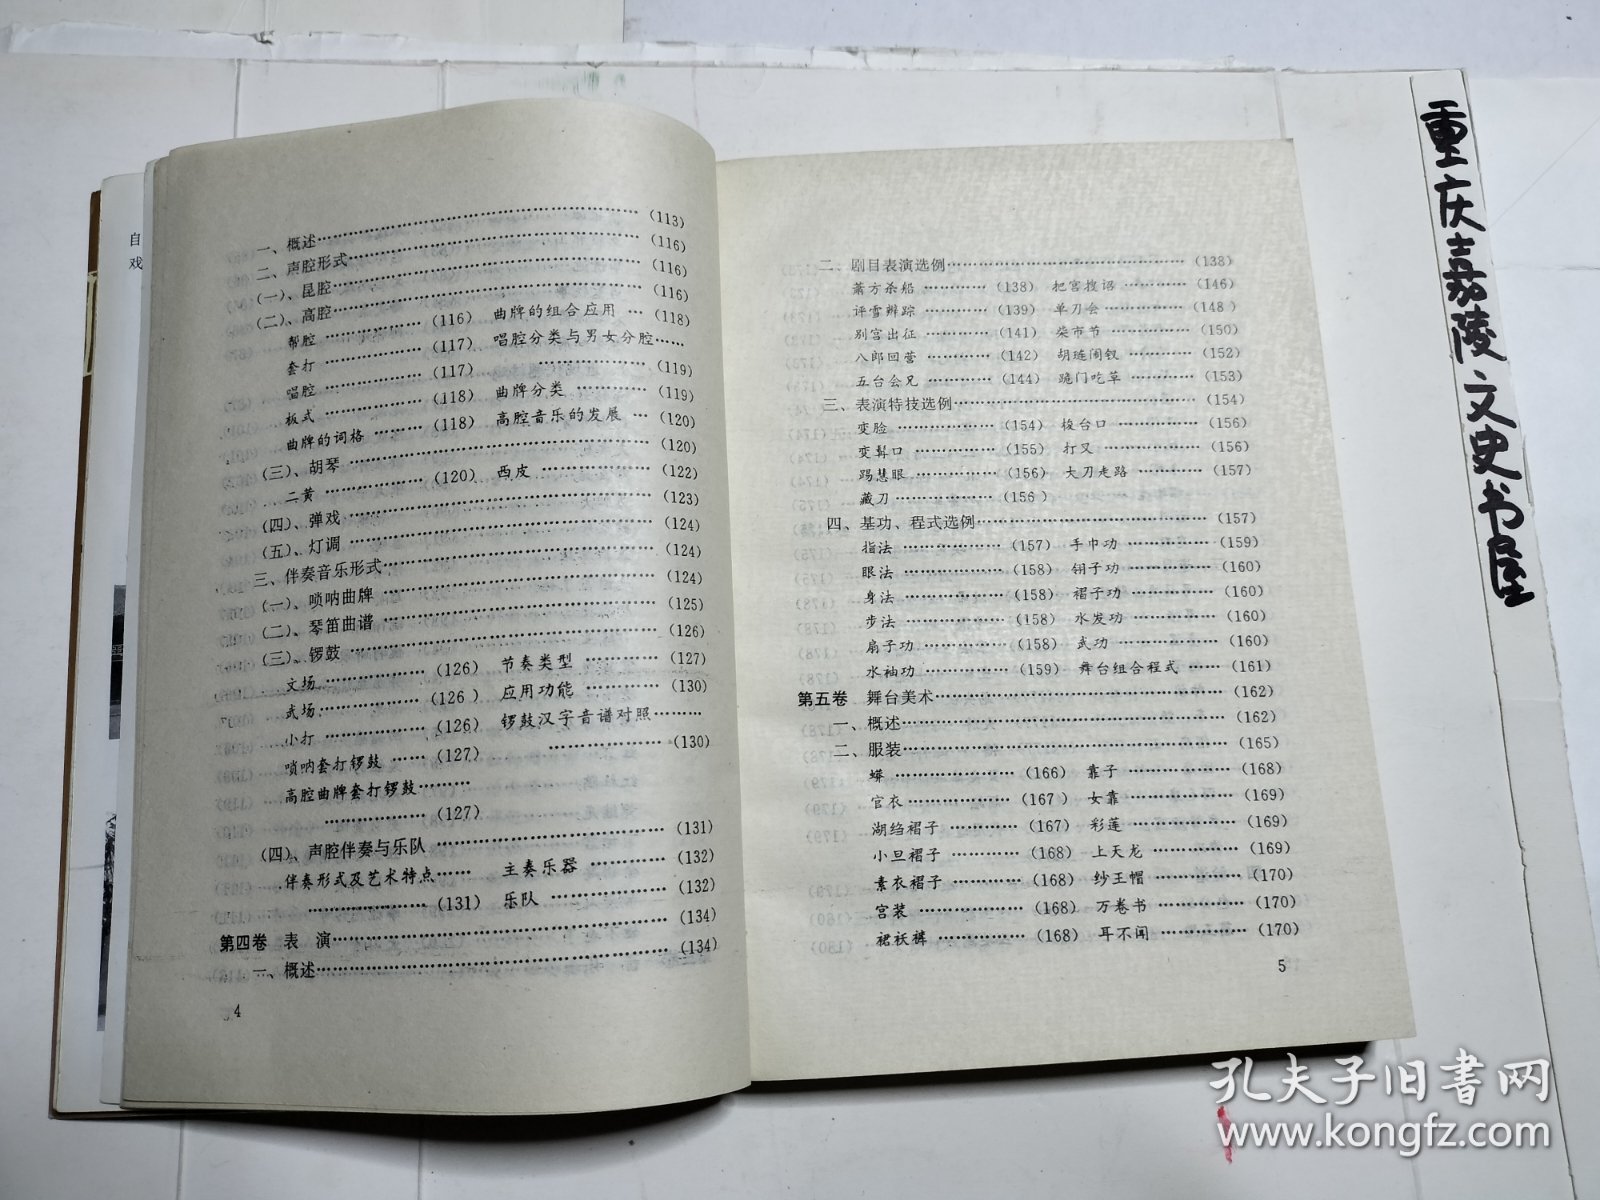 自
戏
一、概述……………………(113)
二、声腔形式……………………(116)
(一)、昆腔……………………(116)
(二)、高腔……………………(116)
帮腔………………(116) 曲牌的组合应用 …(118)
套打………………(117) 唱腔分类与男女分腔……
唱腔………………(117) ………………(119)
板式………………(118) 曲牌分类 …………(119)
曲牌的词格………(118) 高腔音乐的发展 …(120)
(三)、胡琴……………………(120)
二黄………………(120) 西皮………………(122)
(四)、弹戏……………………(123)
(五)、灯调……………………(124)
三、伴奏音乐形式……………………(124)
(一)、唢呐曲牌……………………(124)
(二)、琴笛曲谱……………………(125)
(三)、锣鼓……………………(126)
文场………………(126) 节奏类型 …………(127)
武场………………(126) 应用功能 …………(130)
小打………………(126) 锣鼓汉字音谱对照………
唢呐套打锣鼓 ……(127) ………………(130)
高腔曲牌套打锣鼓………
………………(127)
(四)、声腔伴奏与乐队……………………(131)
伴奏形式及艺术特点…… 主奏乐器 …………(132)
………………(131) 乐队………………(132)
第四卷 表 演……………………(134)
一、概述……………………(134)
4
二、剧目表演选例……………………(138)
萧方杀船 …………(138) 把宫搜诏 …………(146)
评雪辨踪 …………(139) 单刀会 ……………(148)
别宫出征 …………(141) 柴市节 ……………(150)
八郎回营 …………(142) 胡琏闹钗 …………(152)
五台会兄 …………(144) 跪门吃草 …………(153)
三、表演特技选例……………………(154)
变脸………………(154) 梭台口 ……………(156)
变髯口 ……………(155) 打叉………………(156)
踢慧眼 ……………(156) 大刀走路 …………(157)
藏刀………………(156)
四、基功、程式选例……………………(157)
指法………………(157) 手巾功 ……………(159)
眼法………………(158) 翎子功 ……………(160)
身法………………(158) 褶子功 ……………(160)
步法………………(158) 水发功 ……………(160)
扇子功 ……………(158) 武功………………(160)
水袖功 ……………(159) 舞台组合程式 ……(161)
第五卷 舞台美术……………………(162)
一、概述……………………(162)
二、服装……………………(165)
蟒 …………………(166) 靠子………………(168)
官衣………………(167) 女靠………………(169)
湖绉褶子 …………(167) 彩莲………………(169)
小旦褶子 …………(168) 上天龙 ……………(169)
素衣褶子 …………(168) 纱王帽 ……………(170)
宫装………………(168) 万卷书 ……………(170)
裙袄裤 ……………(168) 耳不闻 ……………(170)
5
重庆嘉陵文史书屋
孔夫子旧书网
www.kongfz.com